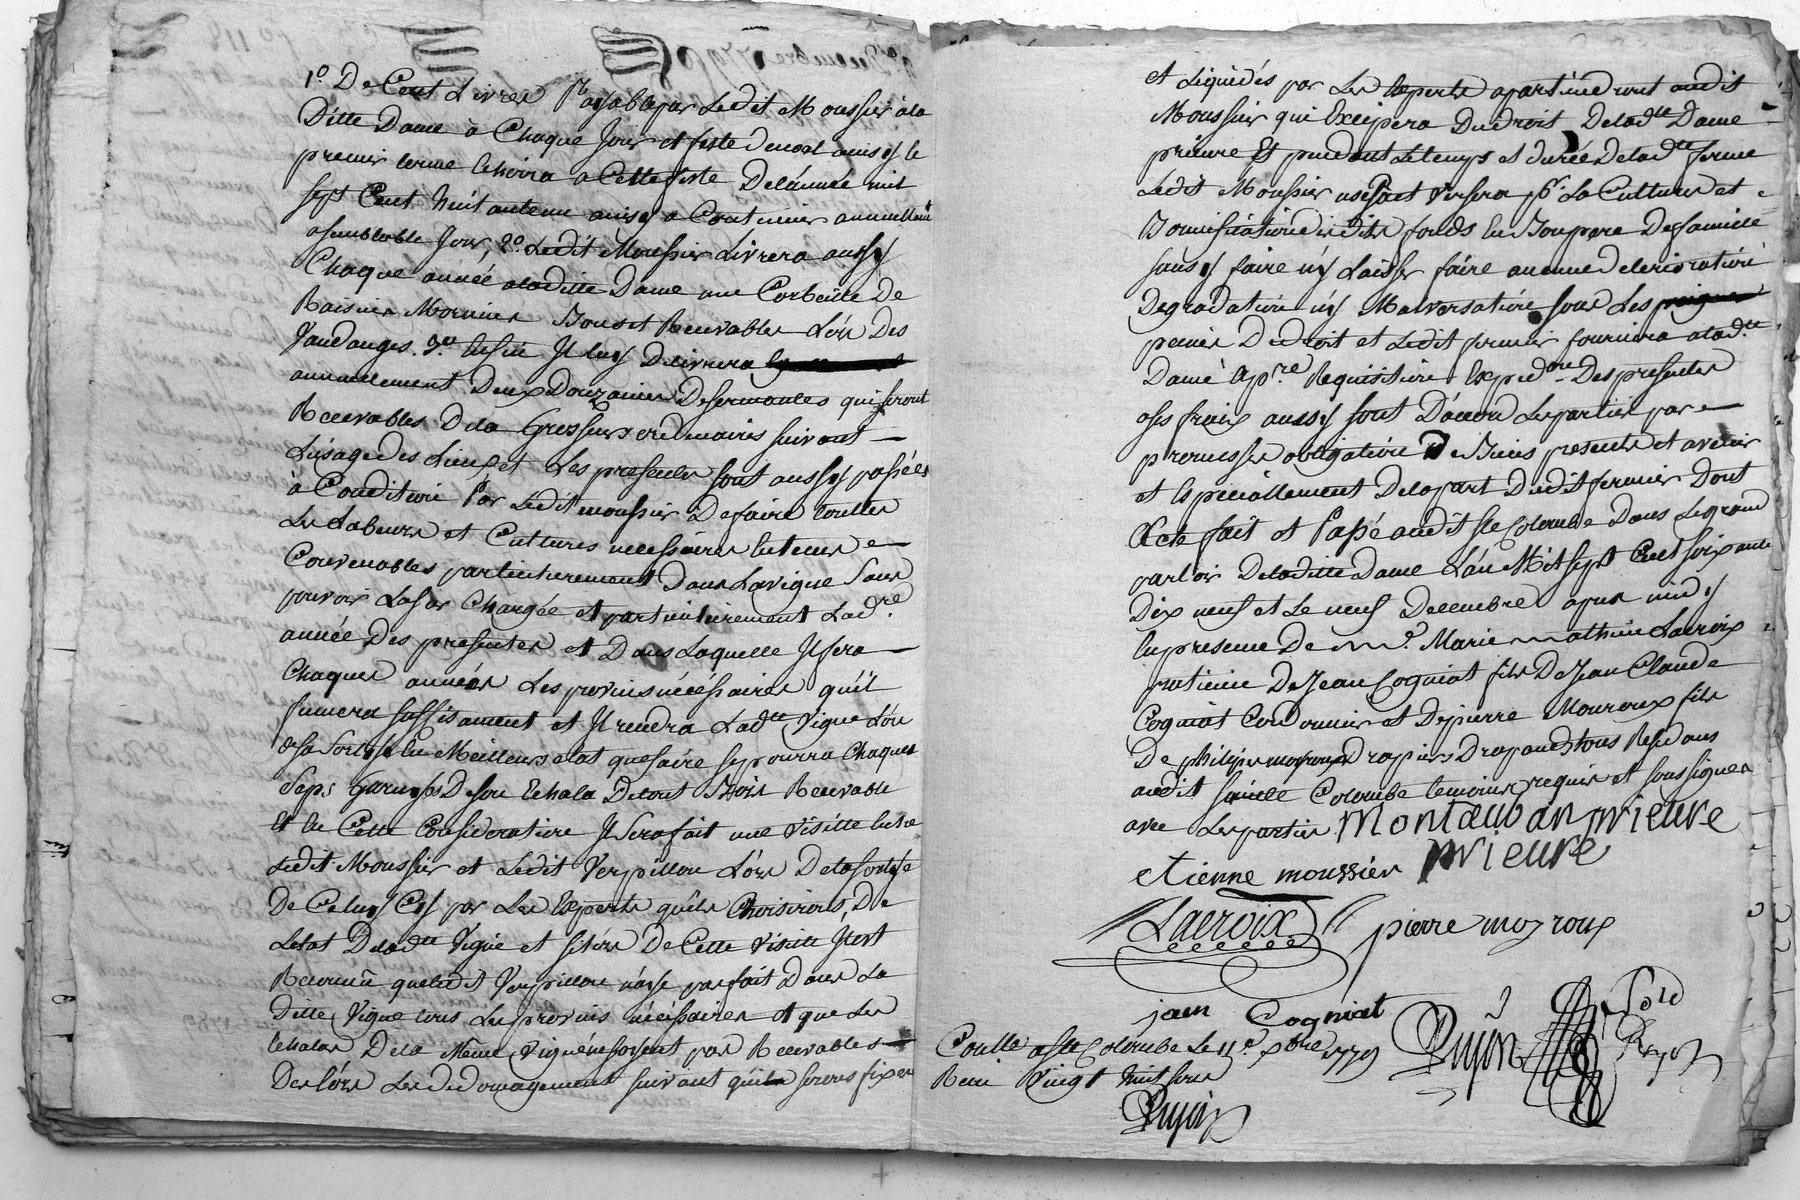 1º. De Cent Livres Payable par Ledit Moussier à la
Ditte Dame à Chaque Jour et feste de noel ainsy le
premier terme echeira a Cette feste De l'année mil
sept Cent huitante ainsy a Continuer annuellemt
a semblable Jour, 2º. Ledit Moussier Livrera aussy
Chaque année a laditte Dame une Corbeille De
Raisins Mornier Bons et Recevables Lors Des
Vandanges. 3º. Enfin Il luy Delivrera
annuellement Deux Douzaines De sermantes qui seront
Recevables De la Grosseur ordinaires suivant
L'usage des Lieux et Les presentes sont aussy passées
à Condition Par Ledit moussier De faire touttes
Les Labeurs et Cultures necessaires en tems
Convenables particulierement Dans La vigne Sans
pouvoir La Chargée et particulierement Lad.re
année Des presentes et Dans Laquelle Il fera
Chaques années Les provins nécéssaires qu'il
fumera suffisament et Il rendra Lad.tte Vigne Lors
de sa Sortye En Meilleurs etat que faire se pourra Chaques
Seps Garnys De son Echala De tout Bois Recevable
Et En Cette Consideration Il Sera fait une Visitte Entre
Ledit Moussier et Ledit Verpillon Lors De la sortye
De Celuy Cy par Les Experts qu'ils Choisirons, De
Letat De lad.tte Vigne et si Lors De Cette Visitte Il est
Reconnû que Ledit Verpillon n'aye pas fait Dans La
Ditte Vigne tous Les provins nécéssaires et que Les
Echalas De la Même Vigne ne soyent pas Recevables
Des Lors Les Dedomagement suivant qu'ils serons fixés
et Liquidés par Les Experts apartiendront audit
Moussier qui Excipera Du droit De lad.tte Dame
prieure Et pendant Le temps et durée De lad.tte ferme
Ledit Moussier usera et Versera pr. La Culture et
Bonnification desdits fonds En Bon pere De famille
sans y faire n'y Laisser faire aucune deterioration
Degradation n'y Malversation sous Les
peines Du droit et Ledit fermier fournira a lad.tte
Dame a pre. Requisition Exped.on Des presentes
a ses fraix aussy sont D'accord Les parties par
promesses obligation De Biens presents et avenir
et Especiallement De la part Dudit fermier Dont
Acte fait et Passé audit Ste Colombe Dans Le grand
parloir De laditte Dame L'an Mil sept Cent soixante
Dix neuf et Le neuf Decembre apres midy
En presence De m.e Marie mathieu Lacroix
praticien De Jean Cogniat fils De Jean Claude
Cogniat Cordonnier et De pierre Mouroux fils
De philipe moyroux Drapiers Drapand tous Residans
audit Sainte Colombe temoins requis et soussignés
avec Les parties Montauban prieure
prieure
etienne moussier
Lacroix pierre moyroux
jean Cogniat
Dujon
Conlle a Ste Colombe Le 11e. xbre 1779
Recu Vingt huit sous
Dujon